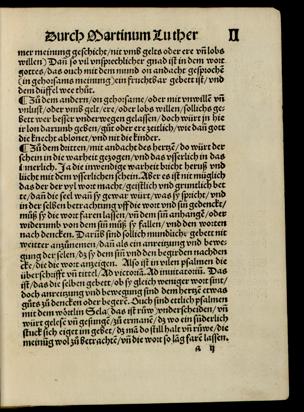 Durch Martinum Luther II
mer meinung geschicht/nit vmb gelts oder ere vñ lobs
willen) Dañ so vil vnsprechlicher gnad ist in dem wort
gottes/das ouch mit dem mund on andacht gesprochē
(in gehorsams meinung) ein fruchtbar gebett ist/vnd
dem düffel wee thůt.
¶ Zů dem andern/on gehorsame/oder mit vnwillē vñ
vnlust/oder vmb gelt/ere/oder lobs willen/sollichs ge-
bett wer besser vnderwegen gelassen/doch würt jn hie
ir lon darumb geben/gůt oder ere zeitlich/wie dañ gott
die knecht ablonet/vnd nit die kinder.
¶ Zů dem dritten/mit andacht des hertzē/do würt der
schein in die warheit gezogen/vnd das vsserlich in das
inerlich. Ja die inwendige warheit bricht heruß vnd
lücht mit dem vsserlichen schein. Aber es ist nit müglich
das der der vyl wort macht/geistlich vnd gruntlich bet
te/dañ die seel wañ sy gewar würt/was sy spricht/vnd
in der selben betrachtung vff die wort vnd siñ gedenckt/
můß sy die wort faren lassen/vñ dem siñ anhangē/oder
widerumb von dem siñ můß sy fallen/vnd den worten
nach dencken. Darūb sind sollich mundlich gebett nit
weitter anzůnemen/dañ als ein anreitzung vnd bewe-
gung der selen/dz sy dem siñ vnd den begirden nachden
cke/die die wort anzeigen. Also ist in vylen psalmen die
überschrifft vñ tittel/Ad victoriā. Ad inuitatoriū. Das
ist/das die selben gebett/ob sy gleich weniger wort sint/
doch anreitzung vnd bewegung sind dem hertzē etwas
gůts zů dencken oder begerē. Ouch sind ettlich psalmen
mit dem wörtlin Sela/das ist růw/vnderscheiden/vñ
würt gelesē vñ gesingē/zů ermanē/dz wo ein süderlich
stuck sich eiget im gebet/dz mā do still halt vñ růwe/die
meinūg wol zů betrachtē/vñ die wort so läg farē lassen.
a ij